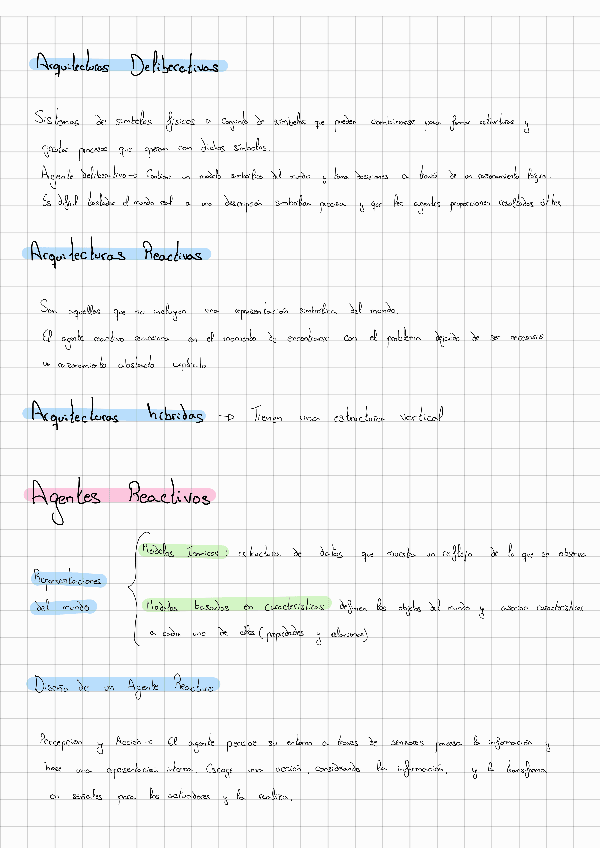 Arquitecturas Deliberativas
Sistemas de símbolos físicos o conjunto de símbolos que pueden combinarse para formar estructuras y
procesos que operan con dichos símbolos.
Agente deliberativo → Contiene un modelo simbólico del mundo y toma decisiones a través de un razonamiento lógico.
Es difícil trasladar el mundo real a una descripción simbólica precisa y que los agentes proporcionen resultados útiles
Arquitecturas Reactivas
Son aquellas que no incluyen una representación simbólica del mundo.
El agente reactivo en el momento de encontrarse con el problema dejando de ser necesario
un razonamiento abstracto
Arquitecturas híbridas → Tienen una estructura vertical
Agentes Reactivos
Modelos Icónicos: estructura de datos que muestra un reflejo de lo que se observa
Representaciones
del mundo
Modelos basados en características definen los objetos del mundo y asocian características
a cada uno de ellos (propiedades y relaciones)
Diseño de un Agente Reactivo
Percepción y Acción: El agente percibe su entorno a través de sensores procesa la información y
hace una representación interna. Escoge una acción, considerando la información, y la transforma
en señales para los actuadores y la realiza.